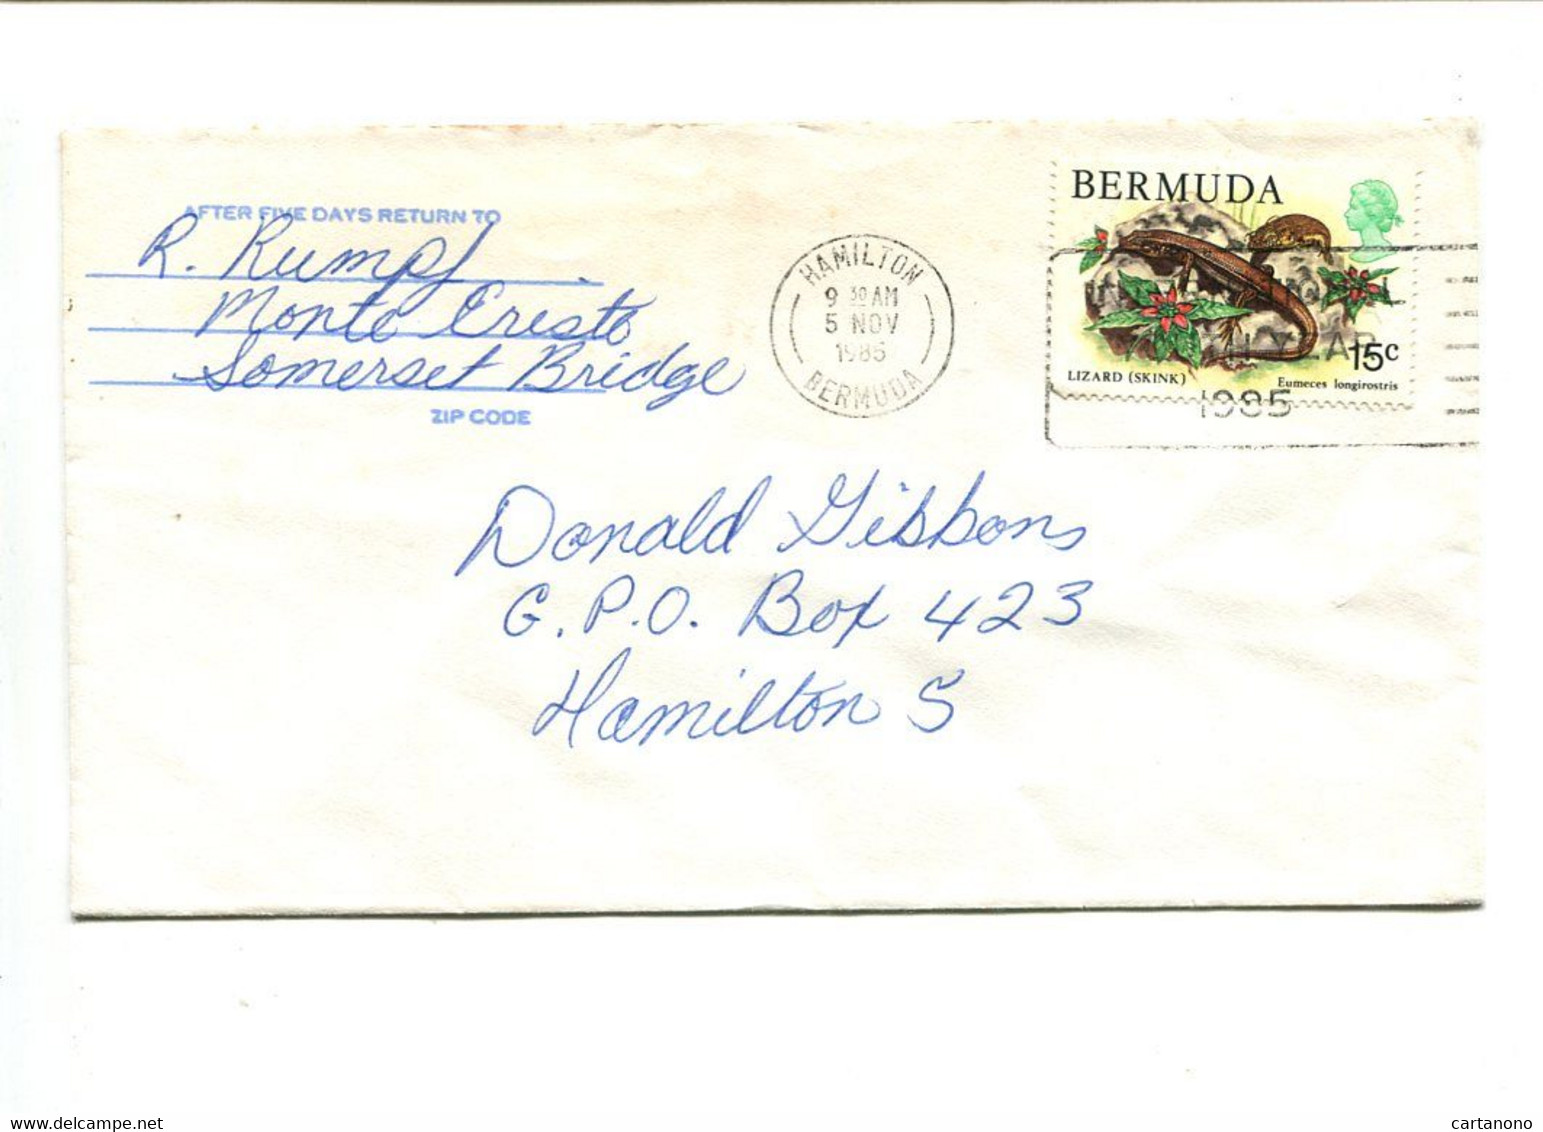 AFTER FIVE DAYS RETURN TO
R. Rumpf
Monte Cristo
Somerset Bridge
ZIP CODE
HAMILTON
9 30 AM
5 NOV
1985
BERMUDA
BERMUDA
15c
LIZARD (SKINK)
Eumeces longirostris
1985
Donald Gibbons
G.P.O. Box 423
Hamilton 5
delcampe.net
cartanono